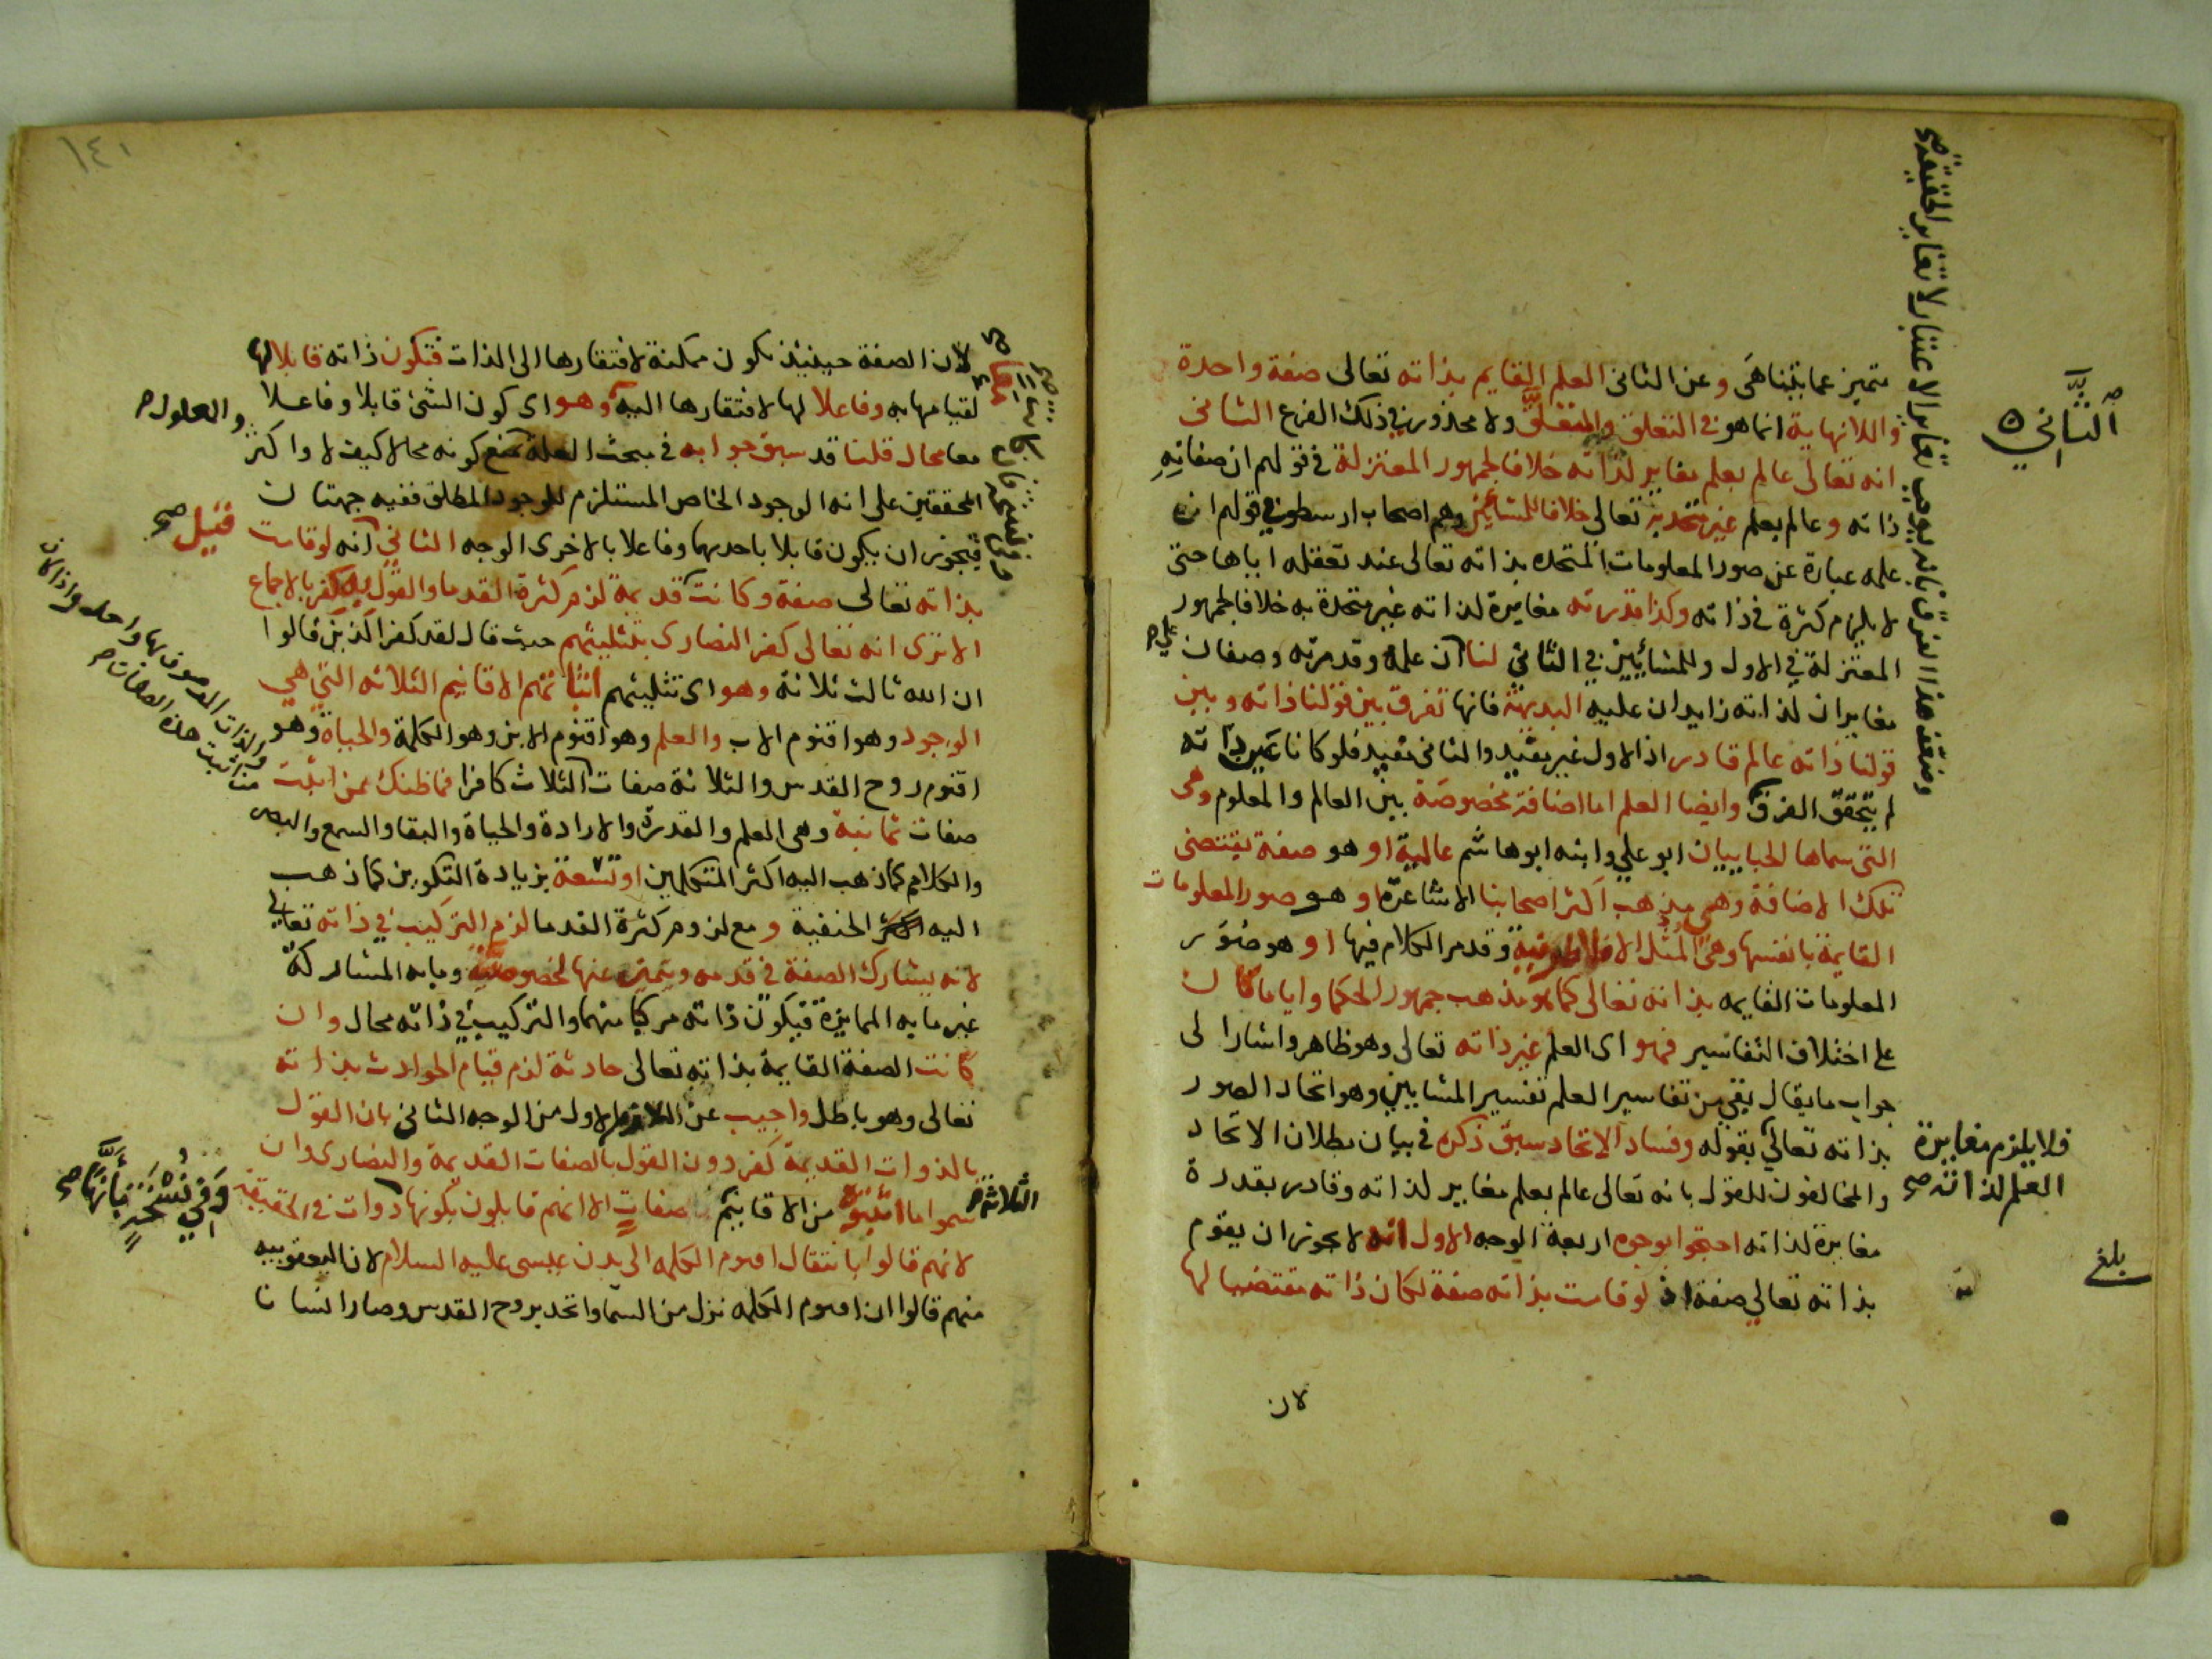 يتميز عما يتناهى وعن الثاني العلم القايم بذاته تعالى صفة واحدة
واللانهاية انما هو في التعلق والمتعلق ولا محذور في ذلك الفرع الثاني
انه تعالى عالم بعلم مغاير لذاته خلافا لجمهور المعتزلة في قولهم ان صفاته
ذاته وعالم بعلم غير متحد به تعالى خلافا للمشائين وهم اصحاب ارسطو في قولهم ان
علمه عبارة عن صور المعلومات المتحده بذاته تعالى عند تعقله اياها حتى
لا يلزم كثرة في ذاته وكذا قدرته مغايرة لذاته غير متحدة به خلافا لجمهور
المعتزلة في الاول وللمشائيين في الثاني لنا ان علمه وقدرته وصفان
مغايران لذاته زايدان عليه البديهة فانها تفرق بين قولنا ذاته وبين
قولنا ذاته عالم قادر اذ الاول غير مفيد والثاني مفيد فلو كانا عين ذاته
لم يتحقق الفرق وايضا العلم اما اضافة مخصوصة بين العالم والمعلوم وهي
التي سماها الجباييان ابو علي وابنه ابو هاشم عالمية او هو صفة تقتضي
تلك الاضافة وهي مذهب اكثر اصحابنا الاشاعرة او هو صور المعلومات
القايمة بانفسها وهي المثل الافلاطونية وقد مر الكلام فيها او هو صور
المعلومات القايمه بذاته تعالى كما هو مذهب جمهور الحكما وايا ما كان
على اختلاف التفاسير فهو اي العلم غير ذاته تعالى وهو ظاهر واشار الى
جواب ما يقال بقي من تفاسير العلم تفسير المشايين وهو اتحاد الصور
بذاته تعالى بقوله وفساد الاتحاد سبق ذكره في بيان بطلان الاتحاد
والمخالفون للقول بانه تعالى عالم بعلم مغاير لذاته وقادر بقدرة
مغايرة لذاته احتجوا بوجوه اربعة الوجه الاول انه لا يجوز ان يقوم
بذاته تعالى صفة اذ لو قامت بذاته صفة لكان ذاته مقتضيا لها
لان
الثاني
فلا يلزم مغايرة
العلم لذاته صح
بلغ
١٤١
لان الصفة حينيذ تكون ممكنة لافتقارها الى الذات فتكون ذاته قابلا لها
لقيامها به وفاعلا لها لافتقارها اليه وهو اي كون الشئ قابلا وفاعلا
معا محال قلنا قد سبق جوابه في مبحث العلة نمنع كونه محالا كيف لا واكثر
المحققين على انه الوجود الخاص المستلزم للوجود المطلق ففيه جهتان
فيجوز ان يكون قابلا باحديهما وفاعلا بالاخرى الوجه الثاني انه لو قامت
بذاته تعالى صفة وكانت قديمة لزم كثرة القدما والقول به كفر بالاجماع
الا ترى انه تعالى كفر النصارى بتثليثهم حيث قال لقد كفر الذين قالوا
ان الله ثالث ثلاثة وهو اي تثليثهم اثباتهم الاقانيم الثلاثه التي هي
الوجود وهو اقنوم الاب والعلم وهو اقنوم الابن وهو الكلمة والحياة وهو
اقنوم روح القدس والثلاثة صفات الثلاث كافرا فما ظنك بمن اثبت
صفات ثمانية وهي العلم والقدرة والارادة والحياة والبقا والسمع والبصر
والكلام كما ذهب اليه اكثر المتكلمين او تسعة بزيادة التكوين كما ذهب
اليه اكثر الحنفية ومع لزوم كثرة القدما لزم التركيب في ذاته تعالى
لانه يشارك الصفة في قدمه ويتميز عنها لخصوصيته وما به المشاركة
غير ما به الممايزة فيكون ذاته مركبا منهما والتركيب في ذاته محال وان
كانت الصفة القايمة بذاته تعالى حادثة لزم قيام الحوادث بذاته
تعالى وهو باطل واجيب عن اللازم الاول من الوجه الثاني بان القول
بالذوات القديمة كفر دون القول بالصفات القديمة والنصارى وان
سموا ما اثبتوه من الاقانيم صفات الا انهم قايلون بكونها ذوات في الحقيقة
لانهم قالوا بانتقال اقنوم الكلمه الى بدن عيسى عليه السلام لان اليعقوبيه
منهم قالوا ان اقنوم الكلمه نزل من السما واتحد بروح القدس وصار انسانا
والمعلول
فقيل صح
الثلاثة
وفي نسخة بانها صح